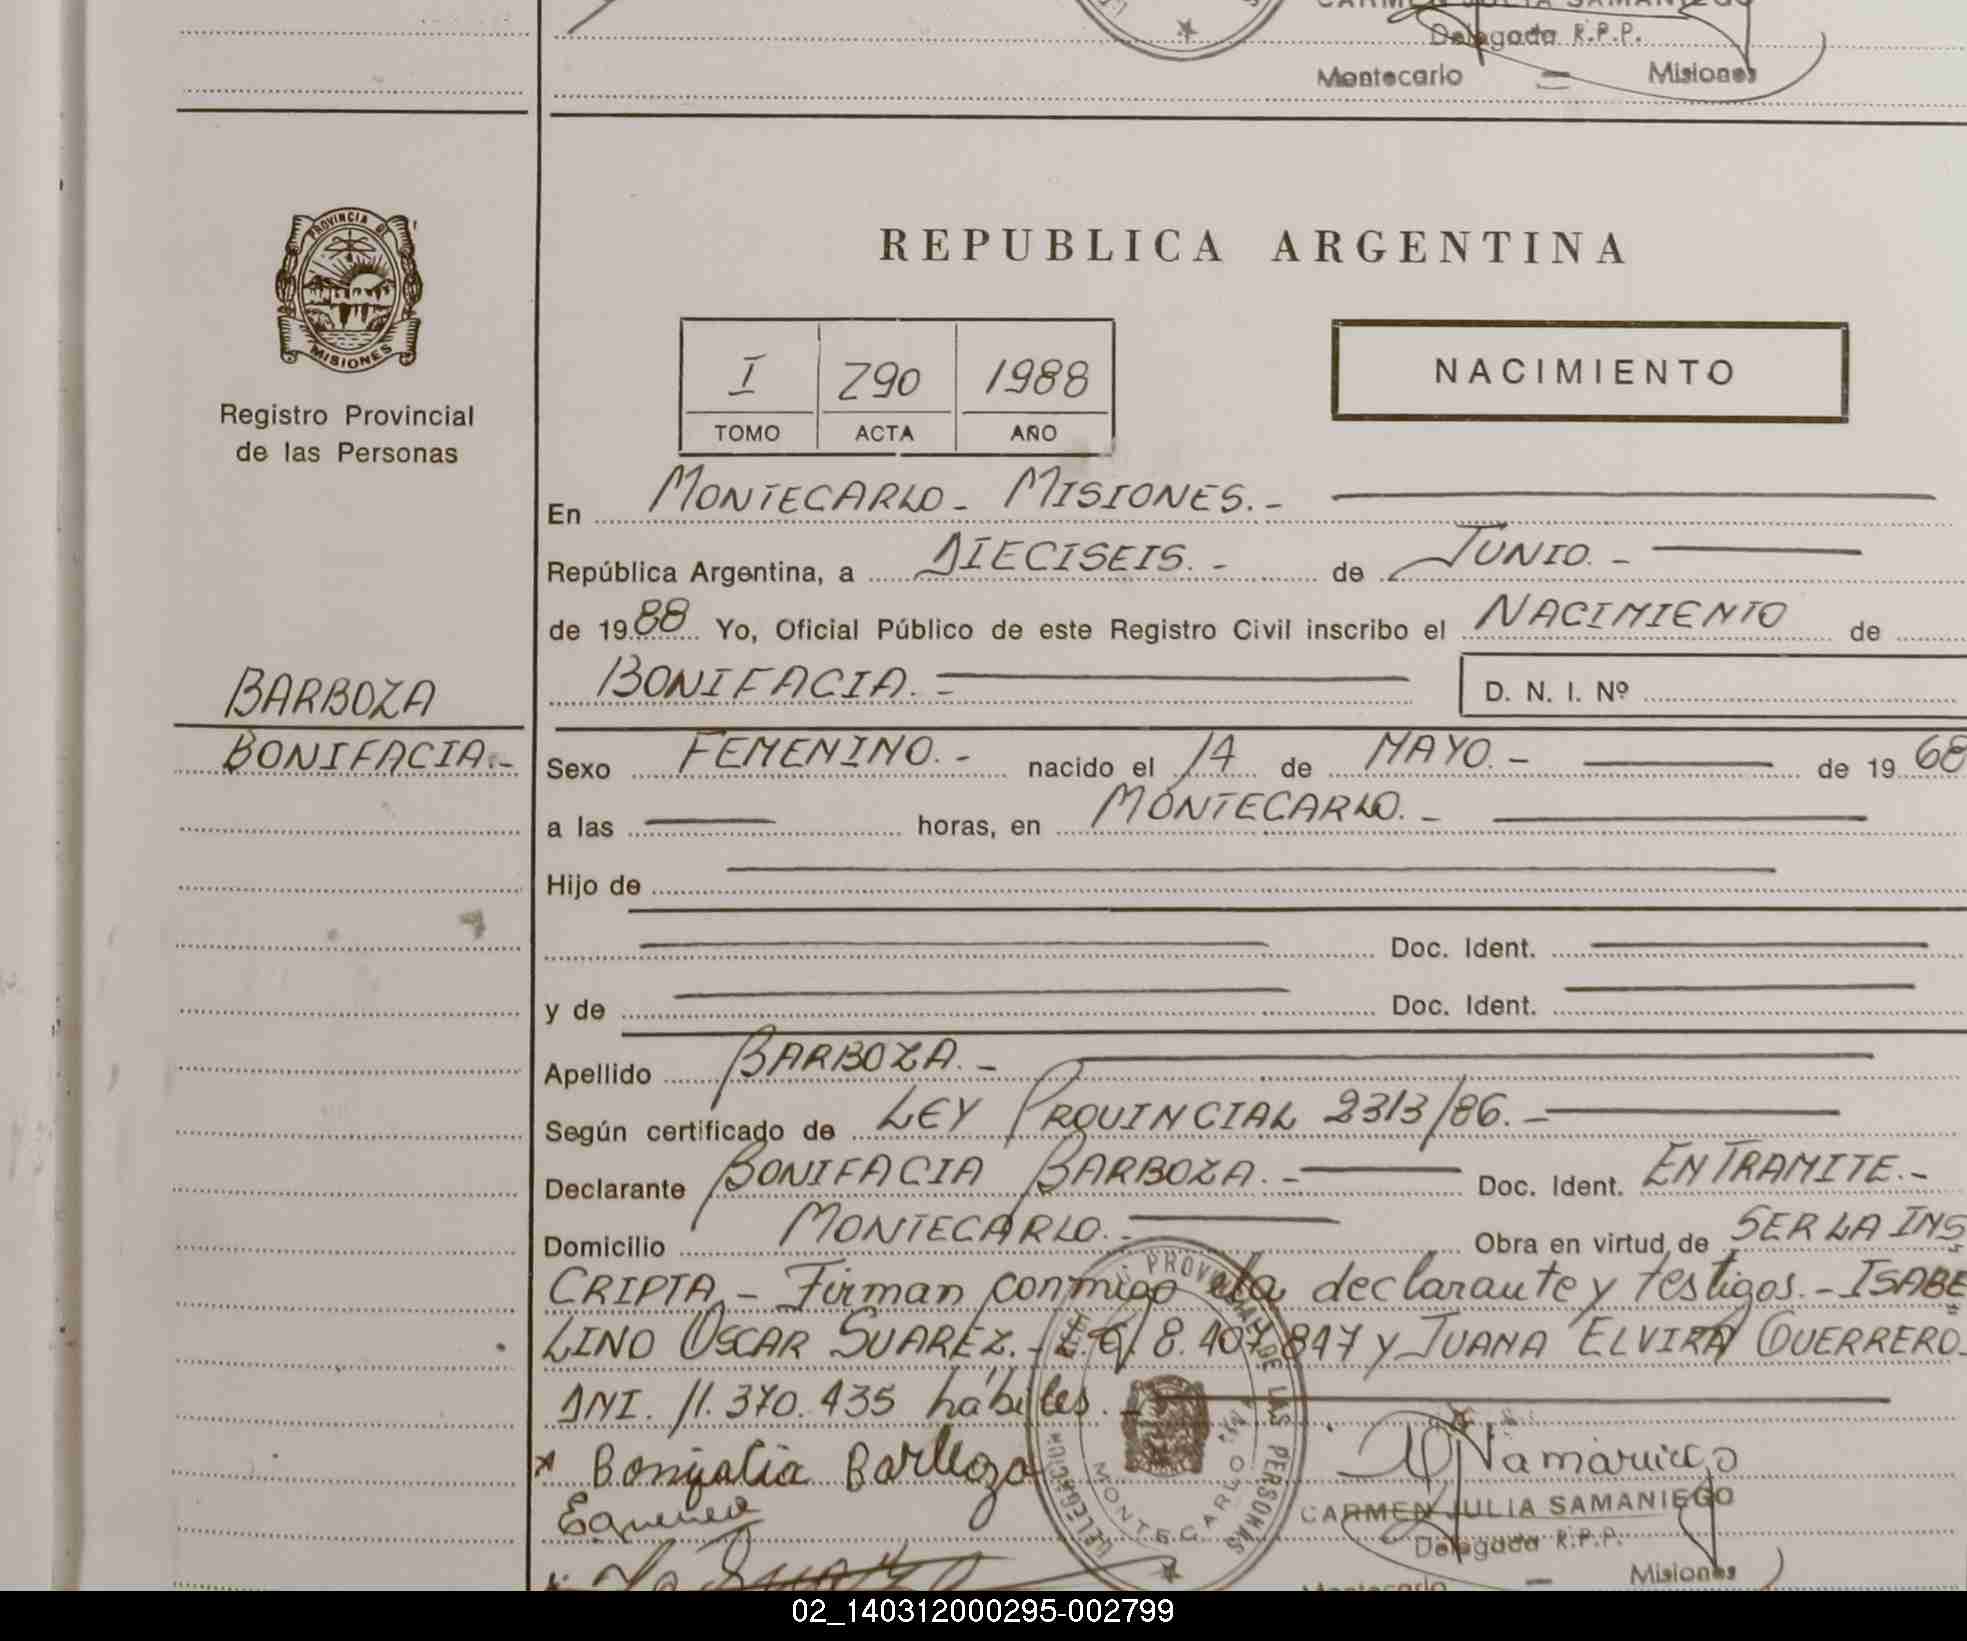 CARMEN JULIA SAMANIEGO
Delegada R.P.P.
Montecarlo — Misiones
PROVINCIA DE
MISIONES
Registro Provincial
de las Personas
REPUBLICA ARGENTINA
I 290 1988
TOMO ACTA AÑO
NACIMIENTO
En MONTECARLO - MISIONES.-
República Argentina, a DIECISEIS.- de JUNIO.-
de 1988 Yo, Oficial Público de este Registro Civil inscribo el NACIMIENTO de
BONIFACIA.= D. N. I. Nº
BARBOZA
BONIFACIA.-
Sexo FEMENINO.- nacido el 14 de MAYO.- de 1968
a las horas, en MONTECARLO.-
Hijo de
Doc. Ident.
y de Doc. Ident.
Apellido BARBOZA.-
Según certificado de LEY PROVINCIAL 2313/86.-
Declarante BONIFACIA BARBOZA.- Doc. Ident. EN TRAMITE.-
Domicilio MONTECARLO.- Obra en virtud de SER LA INS
CRIPTA - Firman conmigo la declarante y testigos.- ISABE
LINO OSCAR SUAREZ.- L.E. 8.407.847 y JUANA ELVIRA GUERRERO.
DNI. 11.370.435 hábiles.-
Bonifacia Barboza
CARMEN JULIA SAMANIEGO
Delegada R.P.P.
Montecarlo — Misiones
PROVINCIAL DE LAS PERSONAS
DELEGACION
MONTECARLO
02_140312000295-002799